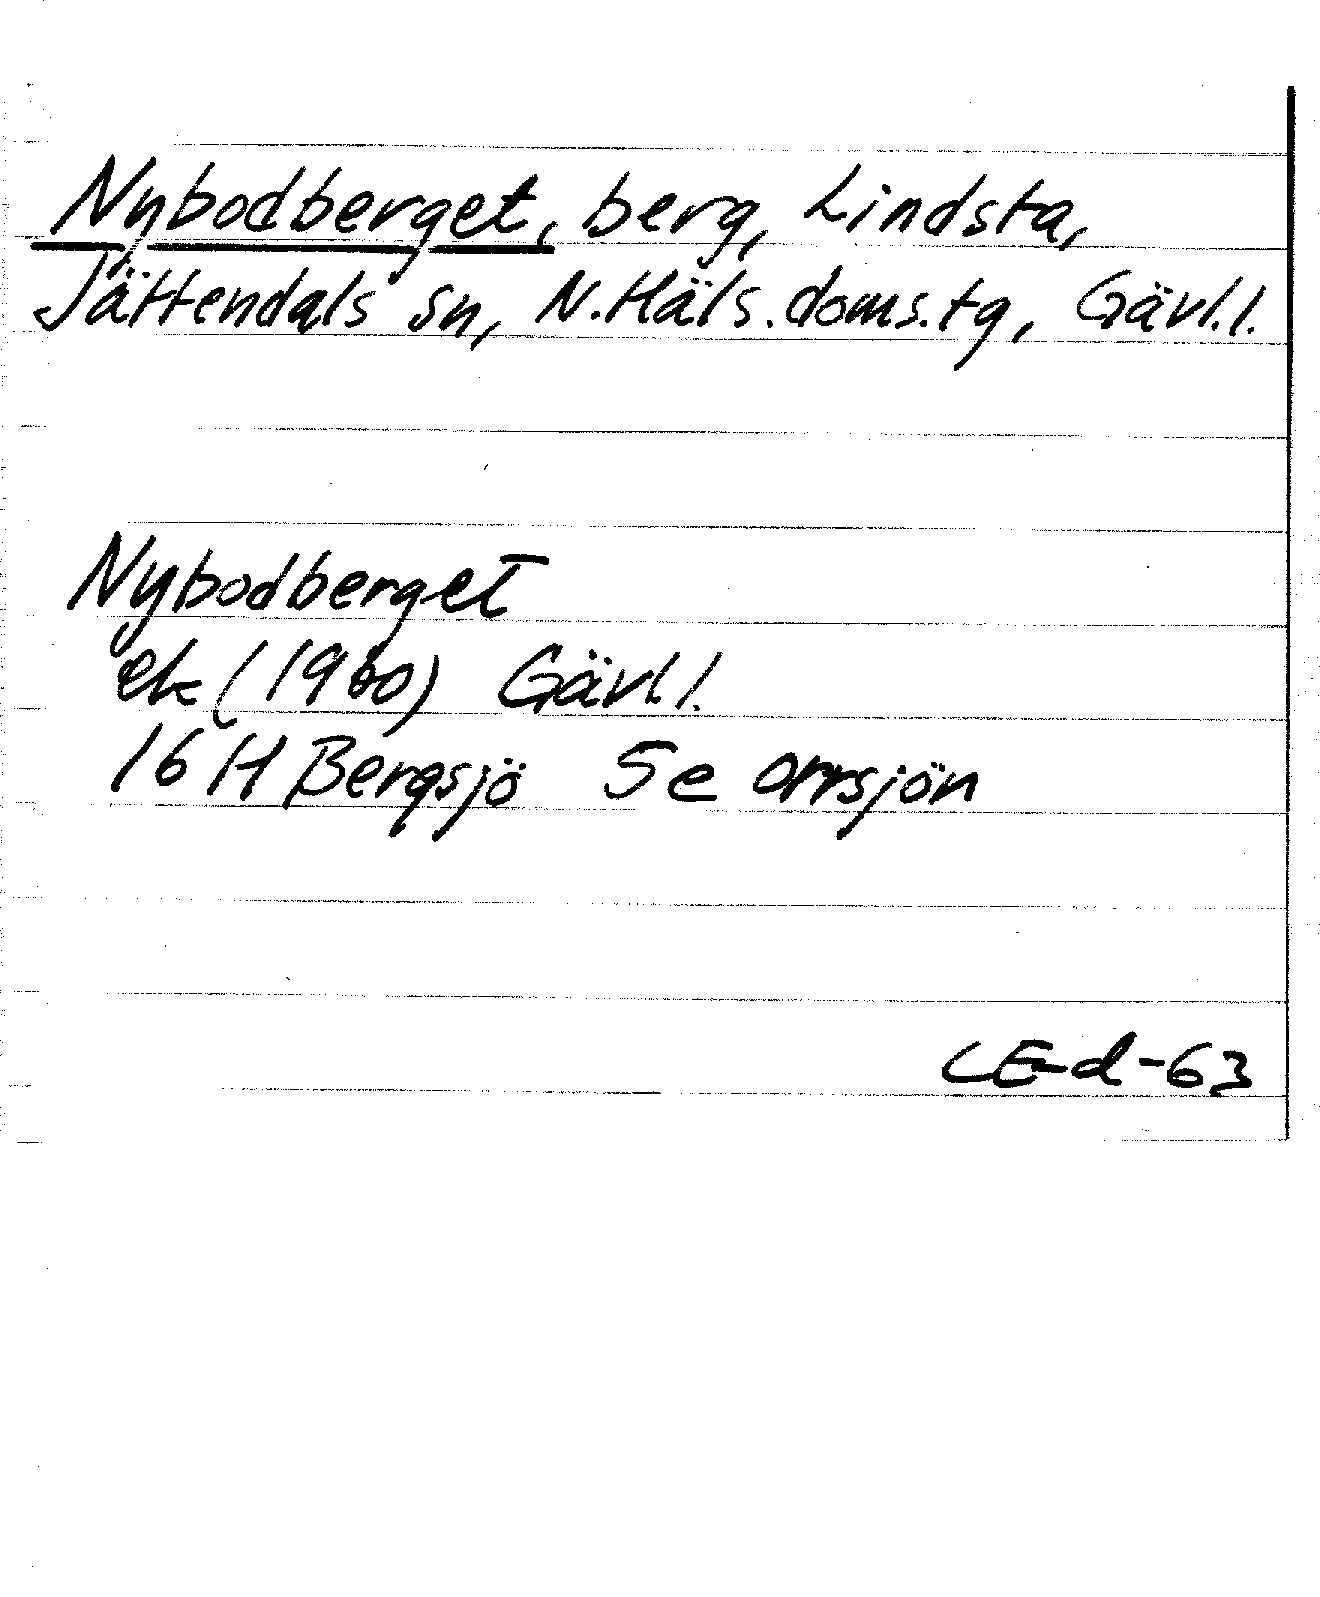 Nybodberget, berg, Lindsta,
Jättendals sn, N.Häls.doms.tg, Gävl.l.
Nybodberget
ek (1960) Gävl.l.
16 H Bergsjö 5e Orrsjön
CE-d-63